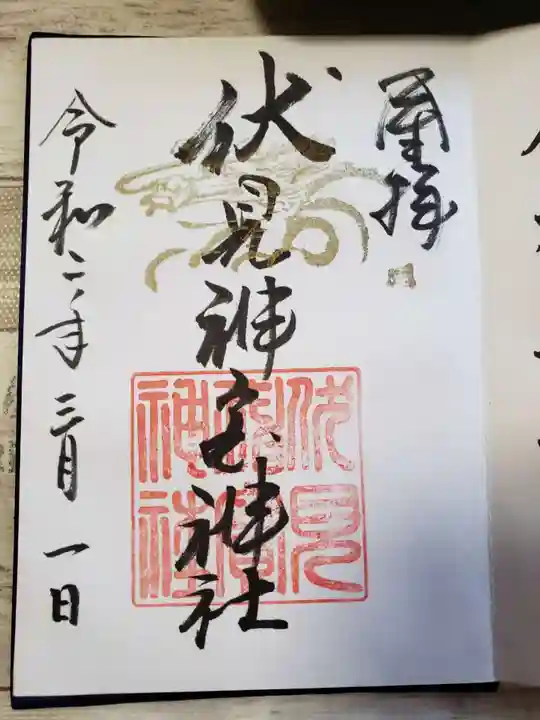 奉拝
伏見神宝神社
伏見神寶神社
令和二年三月一日